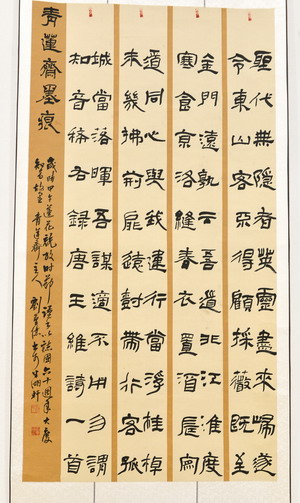 聖代無隱者英靈盡來歸遂
令東山客不得顧採薇既至
金門遠孰云吾道非江淮度
寒食京洛縫春衣置酒長安
道同心與我違行當浮桂棹
未幾拂荊扉遠樹帶行客孤
城當落暉吾謀適不用勿謂
知音稀右錄唐王維詩一首
青蓮齋墨痕
歲時甲午蓮花競放時節謹以 六十周年大慶
青蓮齋主人劉